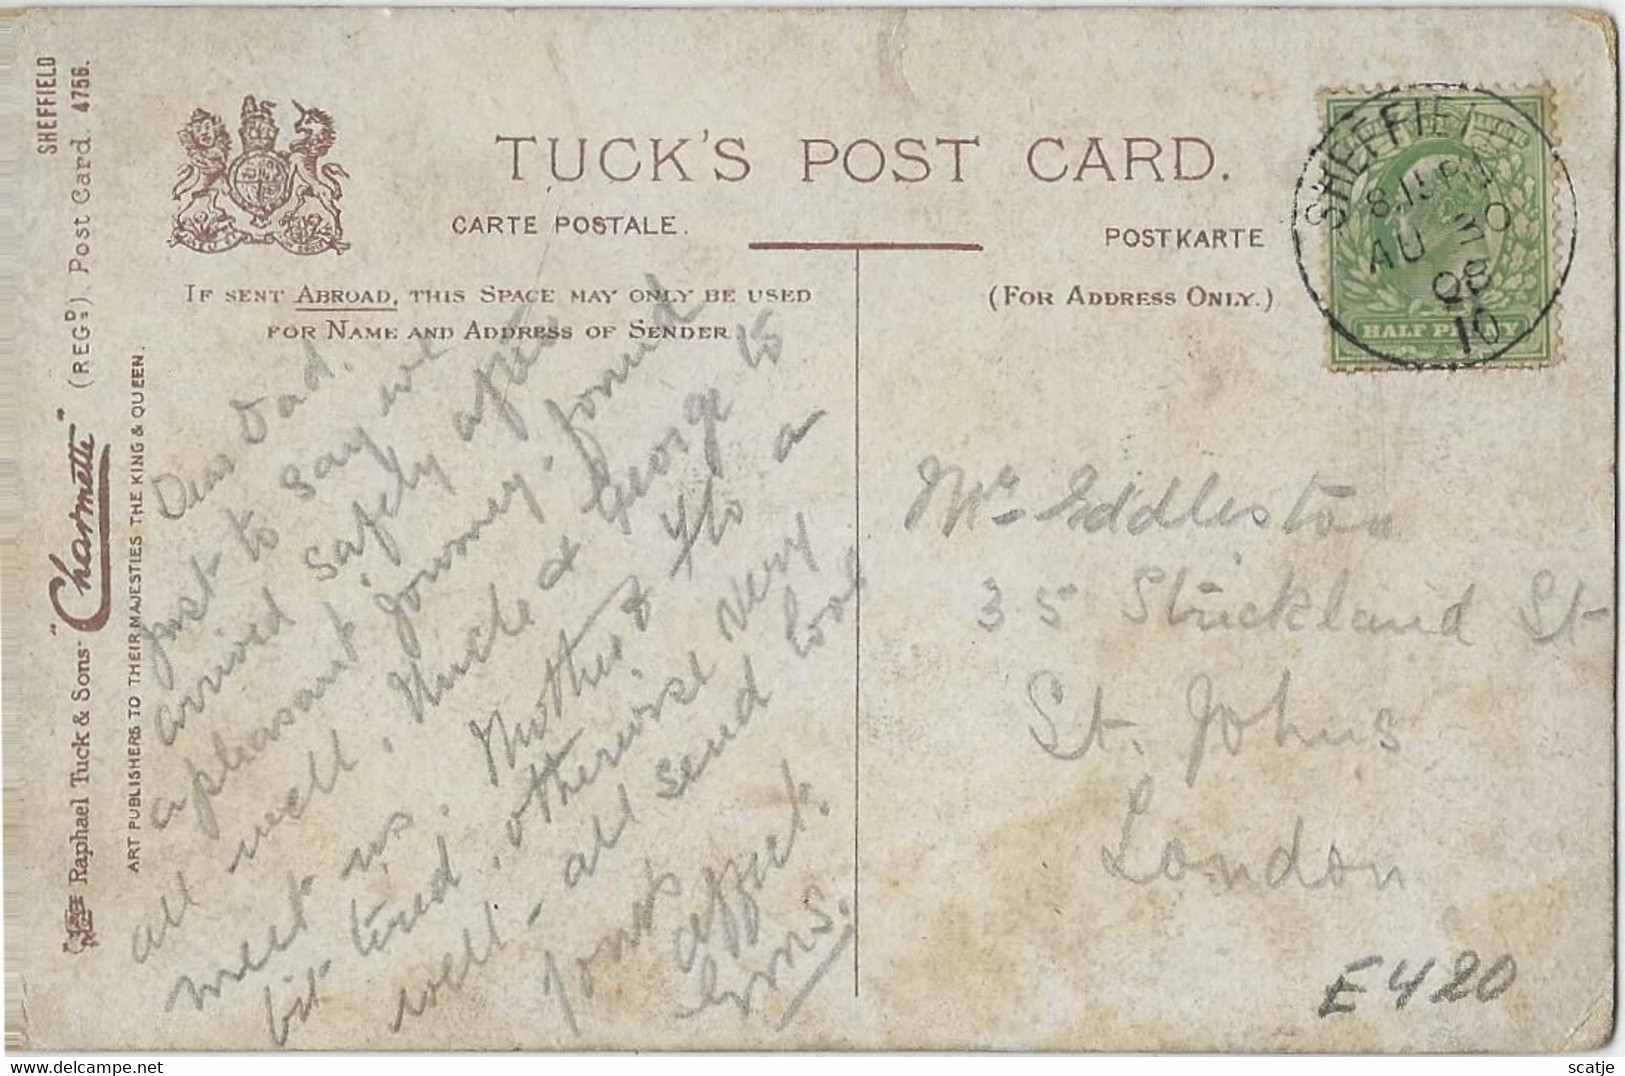 SHEFFIELD
Raphael Tuck & Sons' "Charmette" (REGD.) Post Card 4756.
ART PUBLISHERS TO THEIR MAJESTIES THE KING & QUEEN.
TUCK'S POST CARD.
CARTE POSTALE.
POSTKARTE
IF SENT ABROAD, THIS SPACE MAY ONLY BE USED
FOR NAME AND ADDRESS OF SENDER
(FOR ADDRESS ONLY.)
SHEFFIELD
8.15 PM
AU 30
08
10
HALF PENNY
Dear Dad.
Just to say we
arrived safely after
a pleasant journey. found
all well. Uncle & George to
meet us. Mother & a
bit tired. otherwise very
well - all send love
Yours
affect.
Mr Eddleston
35 Strickland St
St. Johns
London
E420
scatje